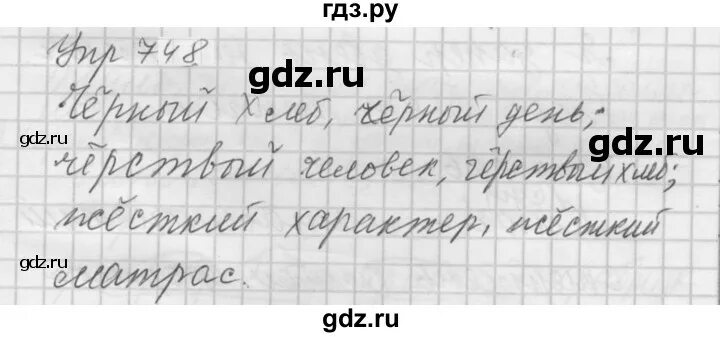 гдз.ру
Упр 748
Чёрный хлеб, чёрный день;
чёрствый человек, чёрствый хлеб;
жёсткий характер, жёсткий
матрас.
gdz.ru
gdz.ru
gdz.ru
gdz.ru
gdz.ru
gdz.ru
gdz.ru
gdz.ru